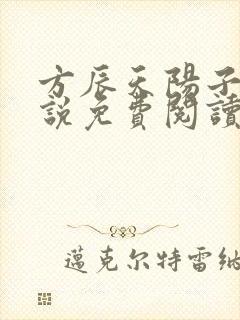 方辰天陽子
說免費閱讀
邁克尔特雷纳